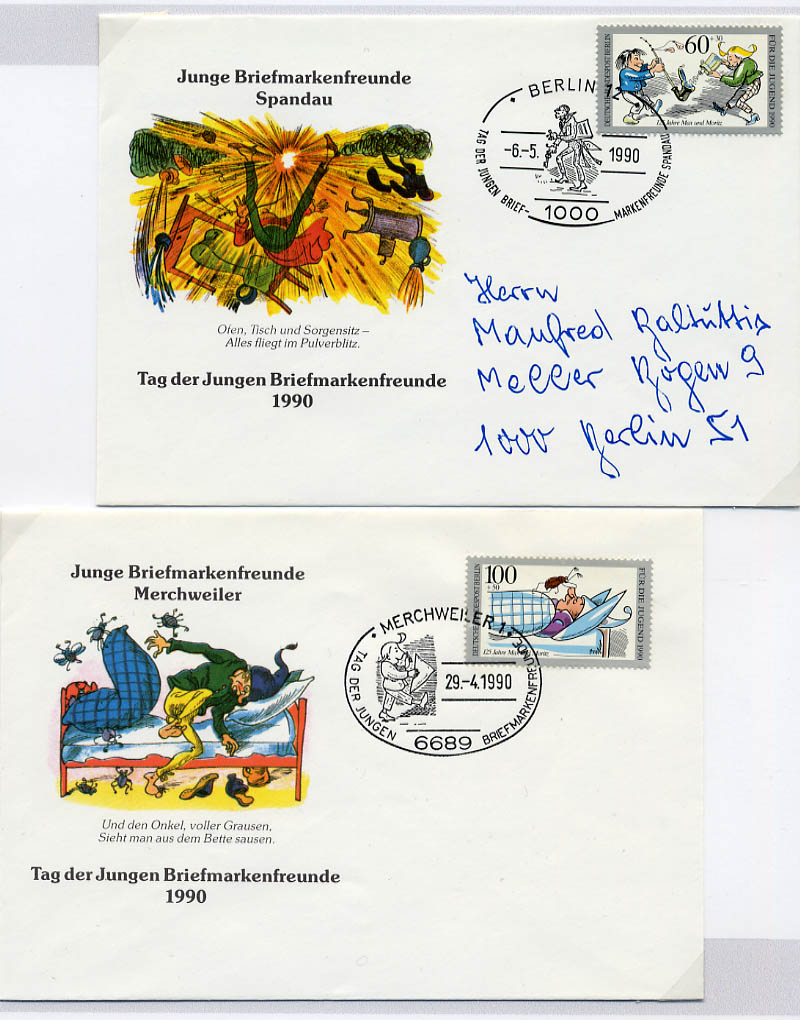 Junge Briefmarkenfreunde
Spandau
Ofen, Tisch und Sorgensitz –
Alles fliegt im Pulverblitz.
Tag der Jungen Briefmarkenfreunde
1990
60 +30
DEUTSCHE BUNDESPOST BERLIN
FÜR DIE JUGEND 1990
125 Jahre Max und Moritz
BERLIN 12
-6.-5. 1990
TAG DER JUNGEN BRIEF- MARKENFREUNDE SPANDAU
1000
Herrn
Manfred Baltuttis
Meller Bogen 9
1000 Berlin 51
Junge Briefmarkenfreunde
Merchweiler
Und den Onkel, voller Grausen,
Sieht man aus dem Bette sausen.
Tag der Jungen Briefmarkenfreunde
1990
100 +50
DEUTSCHE BUNDESPOST BERLIN
FÜR DIE JUGEND 1990
125 Jahre Max und Moritz
MERCHWEILER 1
29.-4.1990
TAG DER JUNGEN BRIEFMARKENFREUNDE
6689